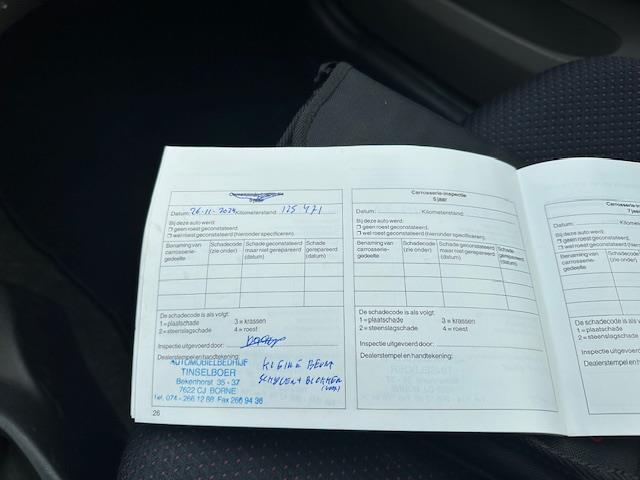 Carrosserie-inspectie
5 jaar
Datum: 26-11-2024 Kilometerstand: 125 471
Bij deze auto werd:
geen roest geconstateerd.
wel roest geconstateerd (hieronder specificeren).
Benaming van carrosserie-gedeelte
Schadecode (zie onder)
Schade geconstateerd maar niet gerepareerd (datum)
Schade gerepareerd (datum)
De schadecode is als volgt:
1 = plaatschade 3 = krassen
2 = steenslagschade 4 = roest
Inspectie uitgevoerd door:
Dealerstempel en handtekening:
AUTOMOBIELBEDRIJF
TINSELBOER
Bekenhorst 35 - 37
7622 CJ BORNE
Tel. 074 - 266 12 88 Fax 266 94 36
KLEINE BEURT
SCHIJVEN + BLOKKEN
26
Carrosserie-inspectie
5 jaar
Datum: Kilometerstand:
Bij deze auto werd:
geen roest geconstateerd.
wel roest geconstateerd (hieronder specificeren).
Benaming van carrosserie-gedeelte
Schadecode (zie onder)
Schade geconstateerd maar niet gerepareerd (datum)
Schade gerepareerd (datum)
De schadecode is als volgt:
1 = plaatschade 3 = krassen
2 = steenslagschade 4 = roest
Inspectie uitgevoerd door:
Dealerstempel en handtekening:
Carrosserie-ins
7 jaar
Datum:
Bij deze auto werd:
geen roest geconstateerd.
wel roest geconstateerd (hi
Benaming van carrosserie-gedeelte
Schadecode (zie onder)
De schadecode is als vo
1 = plaatschade
2 = steenslagschade
Inspectie uitgevoerd doo
Dealerstempel en hand